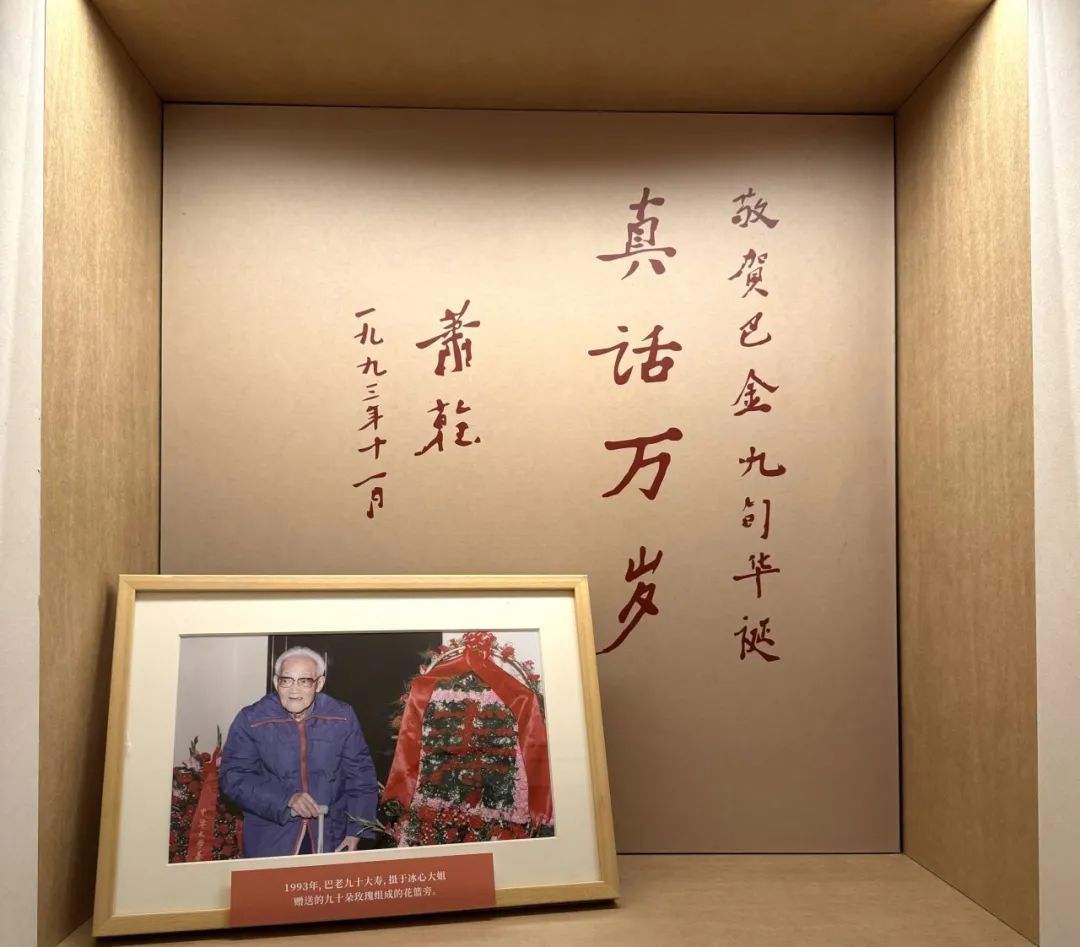 敬賀巴金九旬华诞
真话万岁
蕭乾
一九九三年十一月
寿
1993年，巴老九十大寿，摄于冰心大姐
赠送的九十朵玫瑰组成的花篮旁。